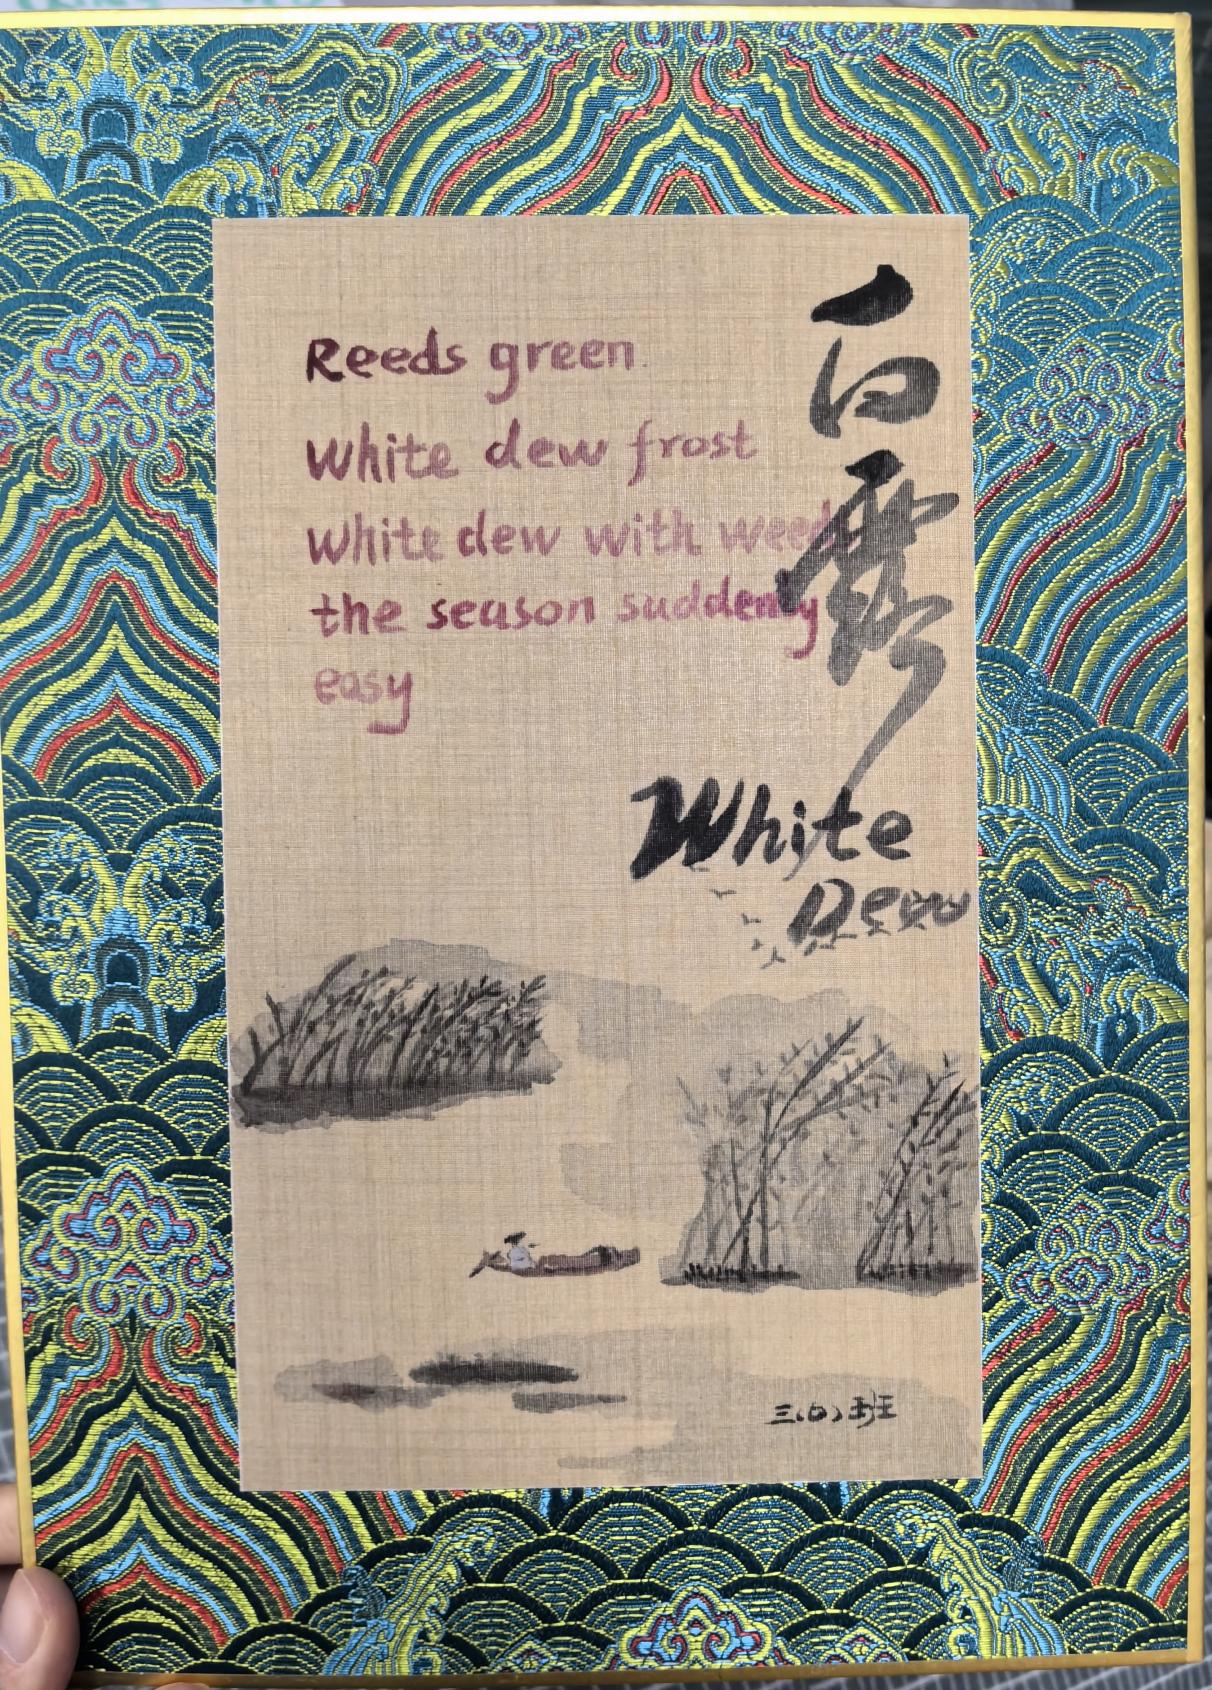 Reeds green.
White dew frost
White dew with weed
the season suddenly
easy
白露
White
Dew